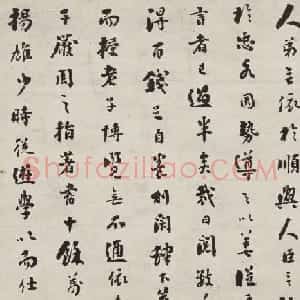 人弟言依於順與人臣言
於忠各因勢導之以善從
言者已過半矣裁日閱數
得百錢足自養則閉肆下
而授老子博覽無不通依
子嚴周之指著書十餘萬
楊雄少時從遊學以而仕
Shufaziliao.com